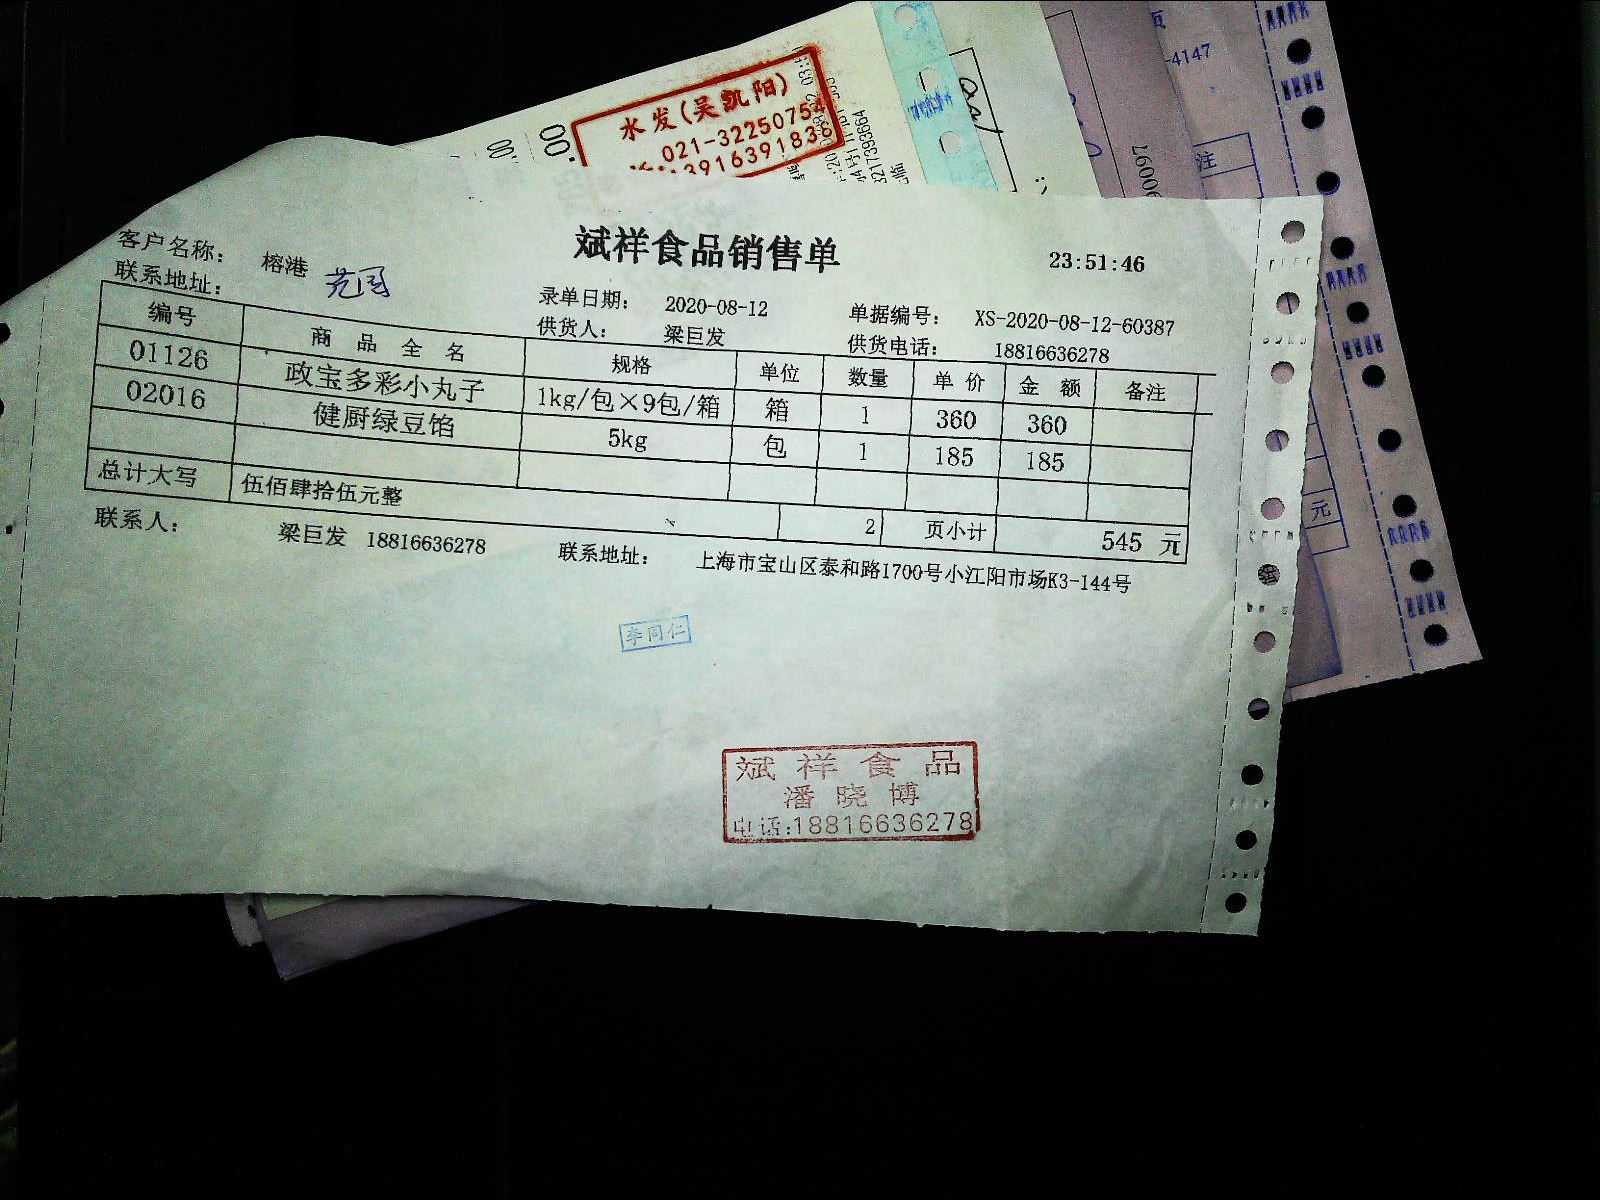 水发(吴凯阳)
021-32250754
13916391838
-4147
注
元
斌祥食品销售单
23:51:46
客户名称： 榕港
录单日期： 2020-08-12
单据编号： XS-2020-08-12-60387
联系地址：
供货人： 梁巨发
供货电话： 18816636278
编号 商品全名 规格 单位 数量 单价 金额 备注
01126 政宝多彩小丸子 1kg/包×9包/箱 箱 1 360 360
02016 健厨绿豆馅 5kg 包 1 185 185
总计大写 伍佰肆拾伍元整 2 页小计 545 元
联系人： 梁巨发 18816636278 联系地址： 上海市宝山区泰和路1700号小江阳市场K3-144号
李同仁
斌祥食品
潘晓博
电话:18816636278